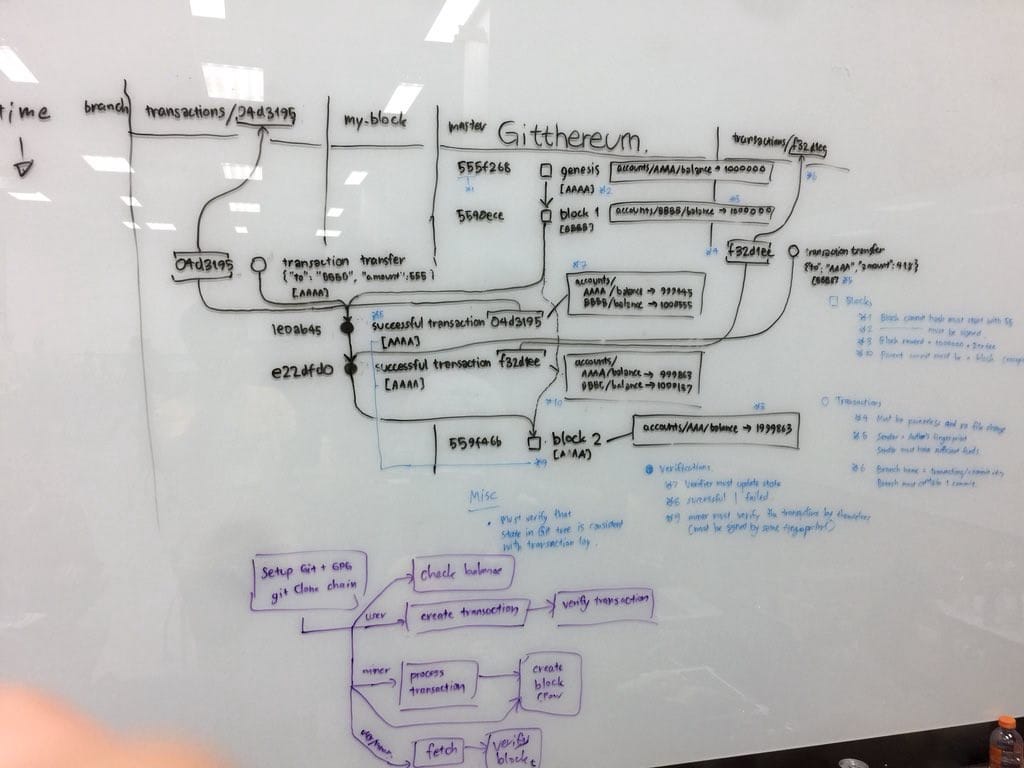 time
branch
transactions/04d3195
my-block
master
Gitthereum.
transactions/f32d1ee
*6
555f268
*1
genesis
[AAAA] *2
accounts/AAAA/balance → 1000000
*3
5590ece
block 1
[BBBB]
accounts/BBBB/balance → 1000000
04d3195
transaction transfer
{"to": "BBBB", "amount": 555 }
[AAAA]
*4
f32d1ee
transaction transfer
{"to": "AAAA", "amount": 418}
*5
*7
accounts/
AAAA/balance → 999445
BBBB/balance → 1000555
*8
1e0ab45
successful transaction 04d3195
[AAAA]
e22dfd0
successful transaction f32d1ee
[AAAA]
accounts/
AAAA/balance → 999863
BBBB/balance → 1000137
*10
*3
559f46b
block 2
[AAAA]
accounts/AAA/balance → 1999863
*9
Blocks
*1 Block commit hash must start with 55
*2 must be signed
*3 Block reward = 1000000
*10 Parent commit must be a block
Transactions
*4 Must be parentless and no file change
*5 Sender = Author's fingerprint
Sender must have sufficient funds
*6 Branch name = transactions/commit id
Branch must 1 commit.
Verifications
*7 Verifier must update state
*8 successful | failed.
*9 miner must verify the transactions by themselves
(must be signed by same fingerprint)
Misc
• Must verify that
state in Git tree is consistent
with transaction log.
Setup Git + GPG
git clone chain
user
check balance
create transaction
verify transaction
miner
process
transaction
create
block
fetch
verify
block